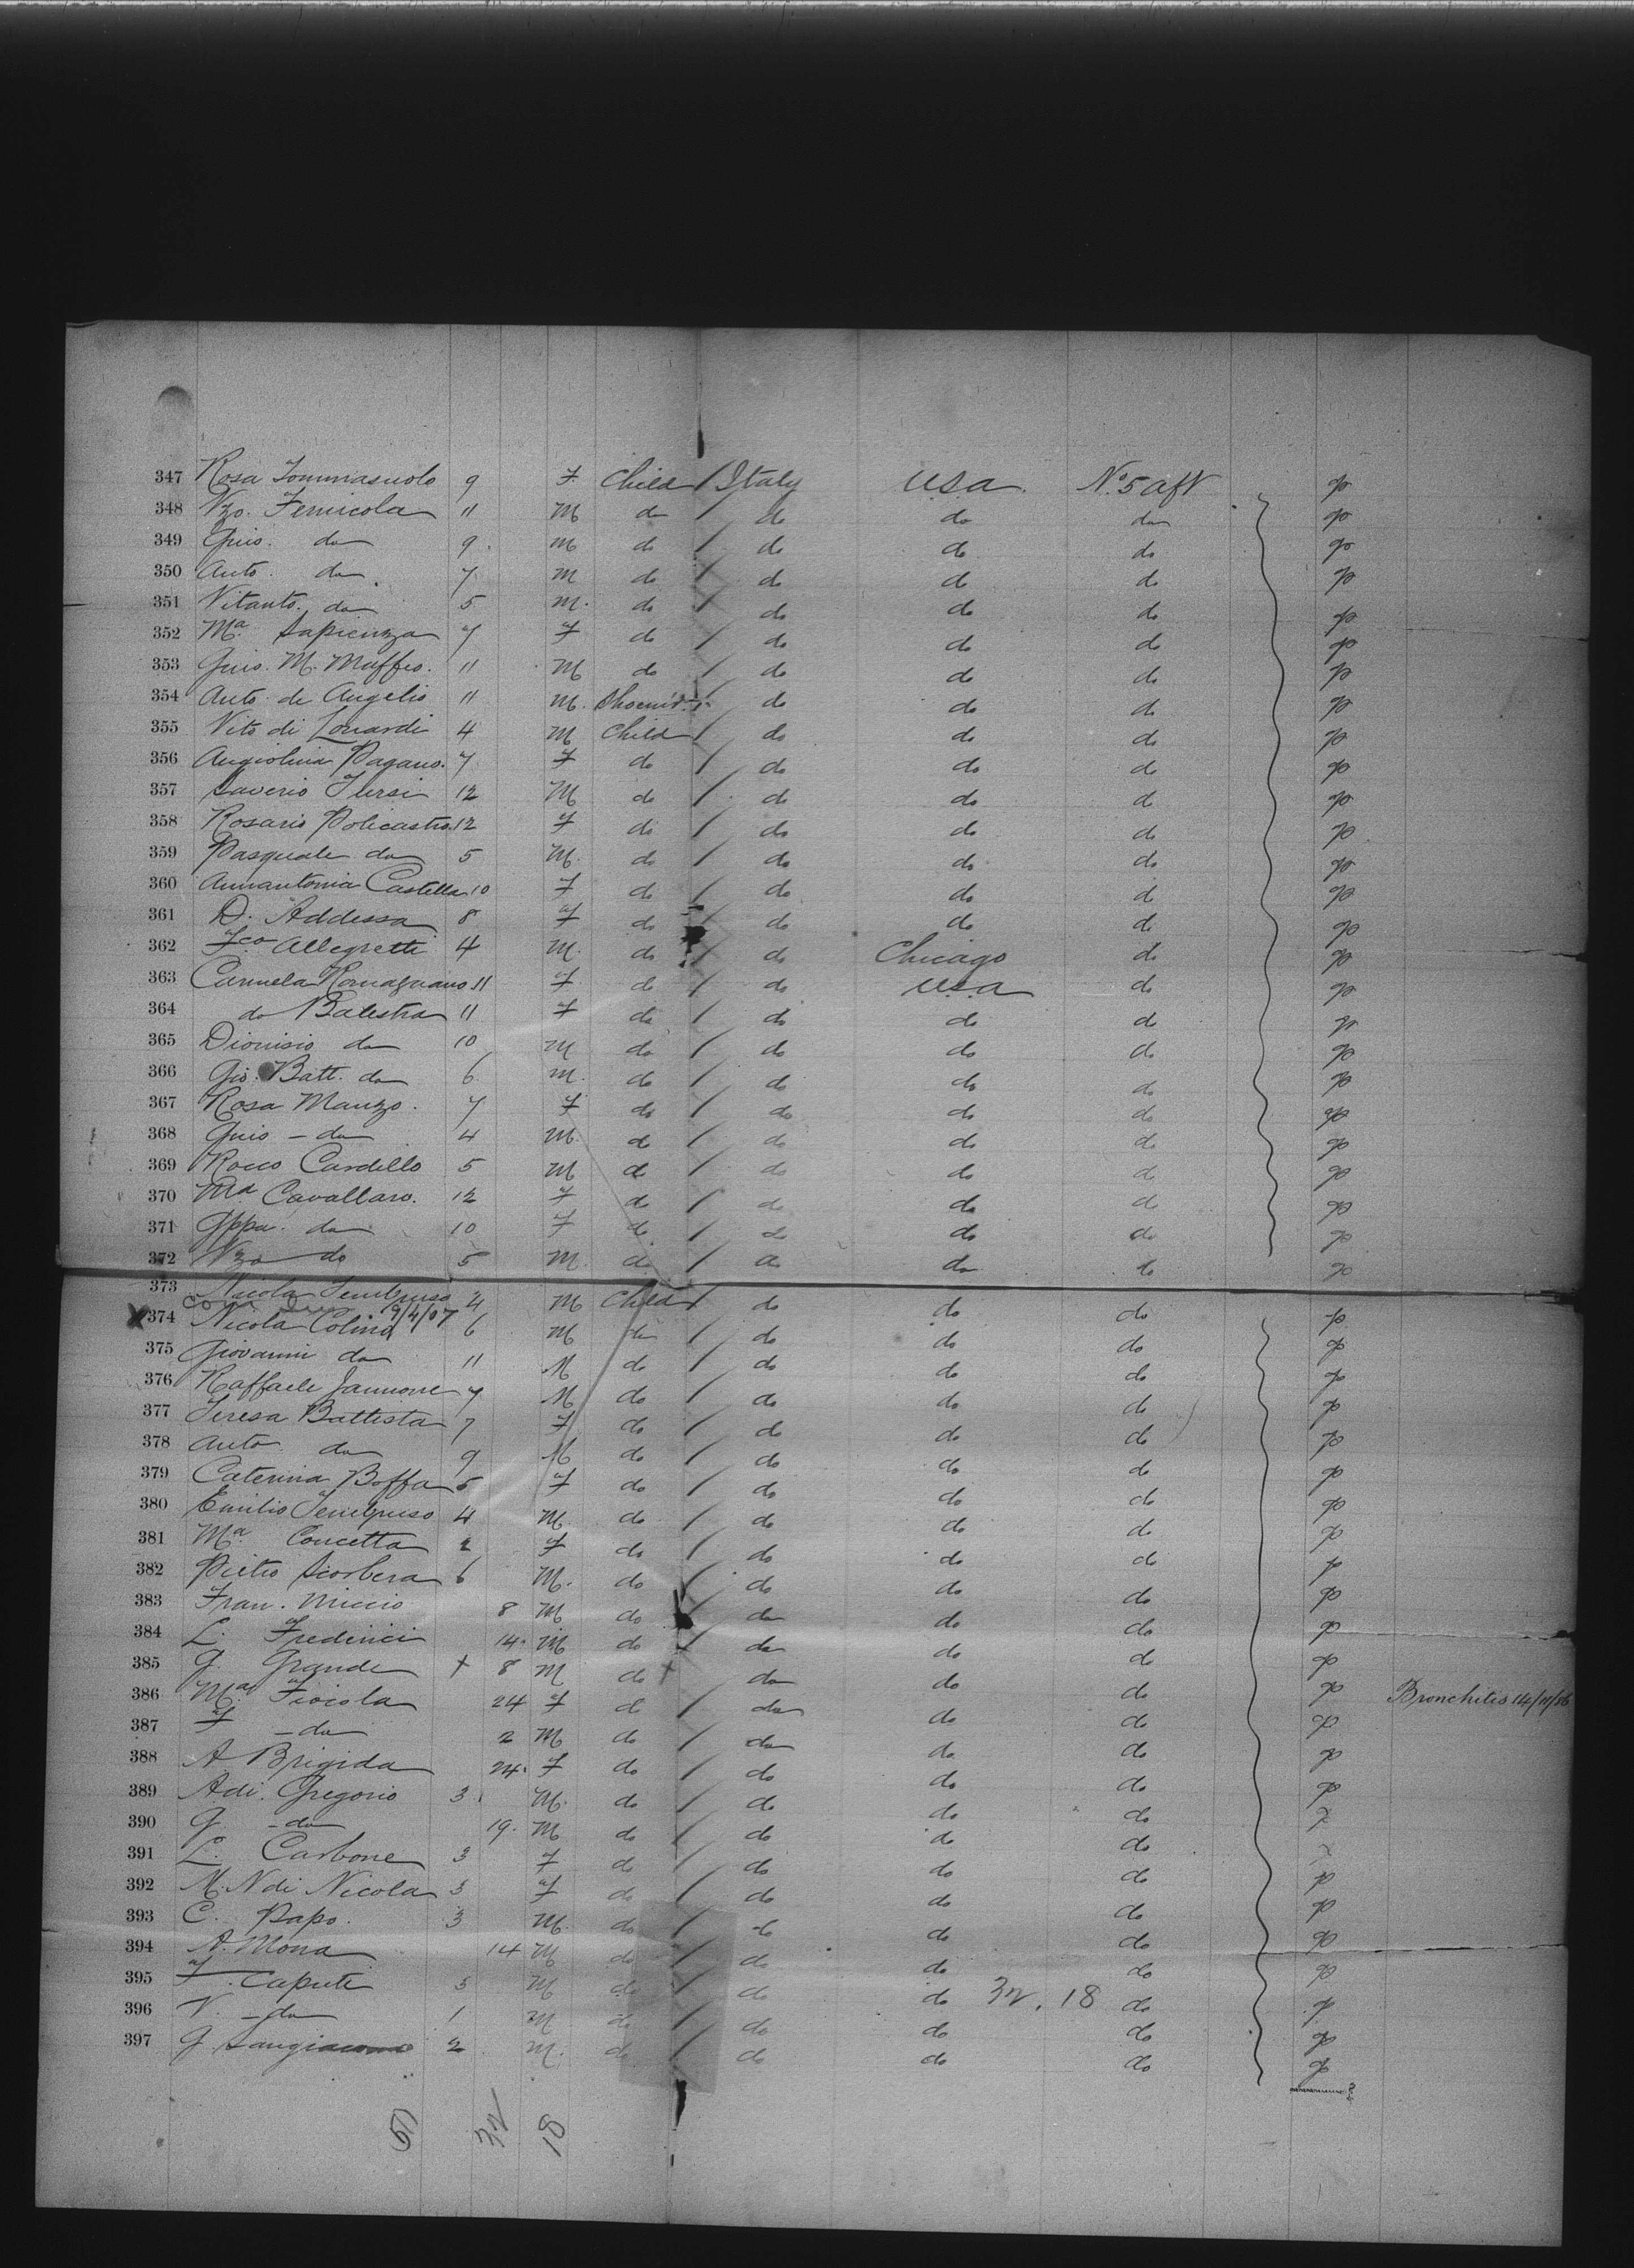 347 Rosa Tommasuolo 9 F Child / Italy U.S.A. No. 5 aft p
348 Vzo. Fernicola 11 M do / do do do p
349 Guis. do 9 M do / do do do p
350 Anto. do 7 M do / do do do p
351 Vitanto. do 5 M. do / do do do p
352 Ma. Sapienza 7 F do / do do do p
353 Guis. M. Maffeo. 11 M do / do do do p
354 Anto. de Angelis 11 M. / do do do p
355 Vito di Lonardi 4 M Child / do do do p
356 Angiolina Pagano. 7 F do / do do do p
357 Saverio Tursi 12 M do / do do do p
358 Rosario Policastro. 12 F do / do do do p
359 Pasquale do 5 M. do / do do do p
360 Annantonia Castella 10 F do / do do do p
361 D. Addessa 8 F do / do do do p
362 Fco Allegretti 4 M. do / do Chicago do p
363 Carmela Romagnano 11 F do / do U.S.A do p
364 do Balestra 11 F do / do do do p
365 Dionisio do 10 M do / do do do p
366 Gio. Batt. do 6 M. do / do do do p
367 Rosa Manzo. 7 F do / do do do p
368 Guis - do 4 M. do / do do do p
369 Rocco Cardillo 5 M do / do do do p
370 Ma Cavallaro. 12 F do / do do do p
371 Gppa. do 10 F do / do do do p
372 Vzo do 5 M. do / do do do p
373 Nicola 4 M Child / do do do p
9/4/07
X 374 Nicola Colina 6 M do / do do do p
375 Giovanni do 11 M do / do do do p
376 Raffaele Jannone 7 M do / do do do p
377 Teresa Battista 7 F do / do do do p
378 Anto. do 9 M do / do do do p
379 Caterina Boffa 5 F do / do do do p
380 Emilio 4 M. do / do do do p
381 Ma. Concetta 2 F do / do do do p
382 Pietro Scorbera 6 M. do / do do do p
383 Fran. Miccio 8 M do / do do do p
384 L. Frederici 14. M do / do do do p
385 G. Grande + 8 M do + do do do p Bronchitis 14/11/06
386 Ma. Fiocola 24 F do / do do do p
387 F - do 2 M do / do do do p
388 A Brigida 24. F do / do do do p
389 A di. Gregorio 3 M. do / do do do
390 G. - do 19. M do / do do do
391 L. Carbone 3 F do / do do do p
392 M. N di Nicola 3 F do / do do do p
393 C. Papo. 3 M. do / do do do p
394 A. Mona 14 M do / do do do p
395 F. Caputi 3 M do / do do 32. 18 do p
396 V. - do 1 M do / do do do p
397 G. Sangiacomo 2 M. do / do do do p
50 32 18